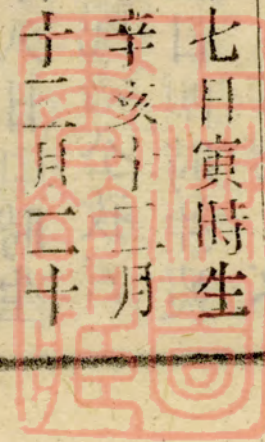 七日寅時生
辛亥十二月
十二月二十